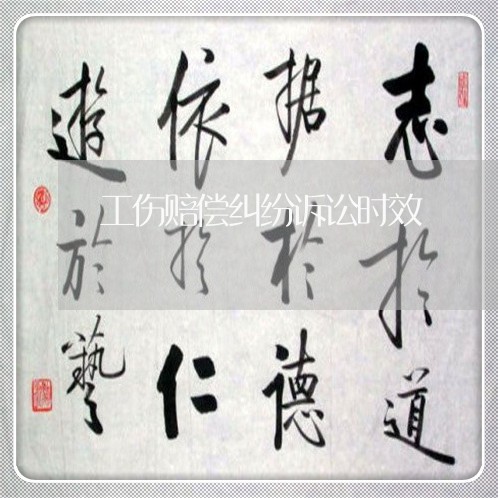 志於道
据於德
依於仁
遊於藝
工伤赔偿纠纷诉讼时效